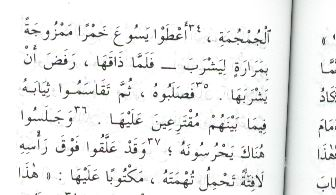 ٱلْجُمْجُمَةِ ، ٣٤أَعْطَوْا يَسُوعَ خَمْرًا مَمْزُوجَةً
بِمَرَارَةٍ لِيَشْرَبَ ــ فَلَمَّا ذَاقَهَا ، رَفَضَ أَنْ
يَشْرَبَهَا . ٣٥فَصَلَبُوهُ ، ثُمَّ تَقَاسَمُوا ثِيَابَهُ
فِيمَا بَيْنَهُمْ مُقْتَرِعِينَ عَلَيْهَا . ٣٦وَجَلَسُوا
هُنَاكَ يَحْرُسُونَهُ ؛ ٣٧وَقَدْ عَلَّقُوا فَوْقَ رَأْسِهِ
لَافِتَةً تَحْمِلُ تُهْمَتَهُ ، مَكْتُوبًا عَلَيْهَا : « هٰذَا